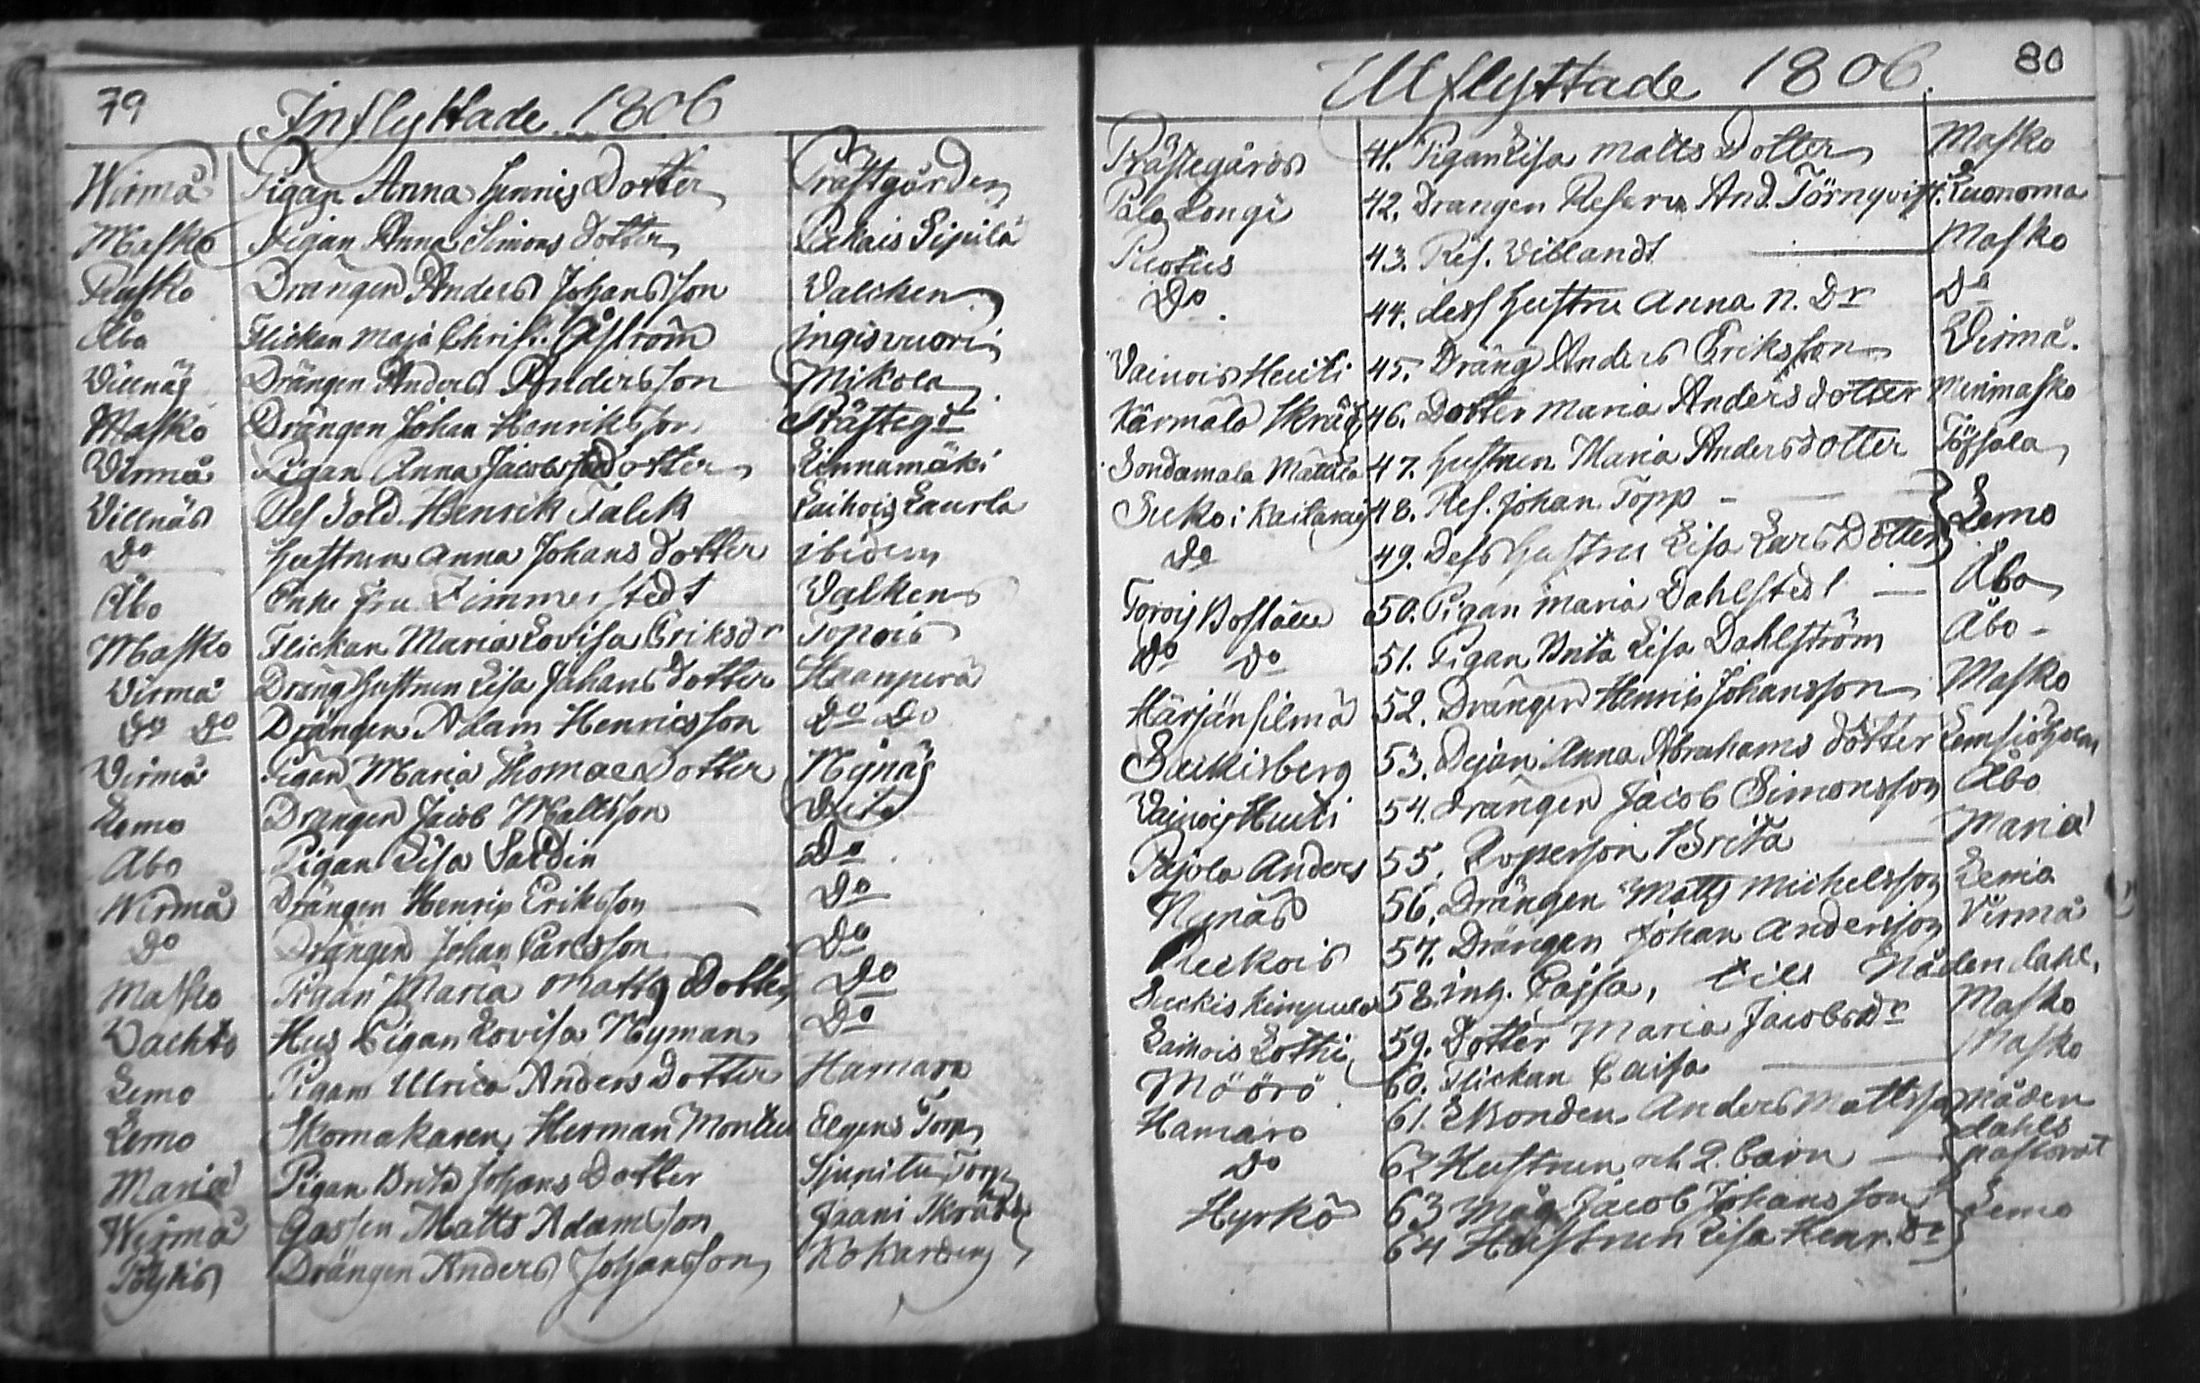 79
Inflyttade 1806
Wirmå Pigan Anna Henrics Dotter Prästgården
Masko Pigan Anna Simons dotter Pekais Sipilä
Rusko Drängen Anders Johansson Walcken
Åbo Flickan Maja Christ. Åström ingisvuori
Villnäs Drängen Anders Andersson Mikola
Masko Drängen Johan Henriksson Prästegd
Virmå Pigan Anna Jacobs Dotter Linnamäki
Villnäs Ref Sold. Henrik Falck Laihois Laurla
Do Hustrun Anna Johans dotter ibidem
Åbo Enke Fru Timmerstedt Walken
Masko Flickan Maria Lovisa Eriksdr Topois
Virmå Dräng Hustrun Lisa Johans dotter Haanperä
Do Do Drängen Adam Henricsson Do Do
Virmå Pigan Maria Thomae Dotter Nynäs
Lemo Drängen Jacob Mattsson Dito
Åbo Pigan Lisa Sardin Do
Wirmå Drängen Henric Eriksson Do
Do Drängen Johan Carlsson Do
Masko Pigan Maria Matts Dotter Do
Vachto Hus Pigan Lovisa Nyman Do
Lemo Pigan Ulrica Anders Dotter Hamaro
Lemo Skomakaren Herman Elgens Torp
Mariæ Pigan Brita Johans Dotter Torp
Wirmå Gossen Matts Adamsson Jaani Skräd
Pöytis Drängen Anders Johansson
80
Utflyttade 1806.
Prästegårds 41. Pigan Lisa Matts Dotter Masko
Palo Longi 42. Drangen Reserv And. Törnqvist. Luonoma
Riotus 43. Ref. Villandt Masko
Do. 44. dess hustru Anna N. Dr Do
Vainois Heiti 45. Dräng Anders Eriksson Virmå.
Kärmälä Skräd 46. Dotter Maria Anders dotter Merimasko
Sondamala Mattila 47. Hustrun Maria Andersdotter Töfsala
Suko i 48. Ref. Johan Topp - Lemo
Do 49. Dess Hustru Lisa Lars Dotter
Torois Boställe 50. Pigan Maria Dahlstedt Åbo
Do Do 51. Pigan Brita Lisa Dahlström Åbo -
Härjänsilmä 52. Drängen Henric Johansson Masko
Saukisberg 53. Dejan Anna Abrahams dotter Lemsiöholm
Vainois Heiti 54. drängen Jacob Simonsson Åbo
Pajola Anders 55. Brita Mariæ
Nynäs 56. Drängen Matts Michelsson Lemo
57. Drängen Johan Andersson Virmå
58. inh. Cajsa, till Nådendahl,
Laihois Lothi 59. Dotter Maria Jacobsdr Masko
Möörö 60. Flickan Caisa Masko
Hamaro 61. Bonden Anders Mattsson Nåden
dahls
Do 62 Hustrun och 2. barn pastorat
Hyrkö 63 Måg Jacob Johansson Lemo
64 Hustrun Lisa Henr. Dr